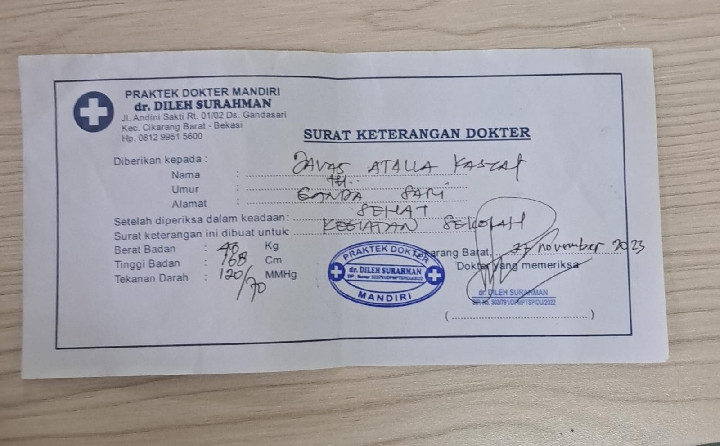 PRAKTEK DOKTER MANDIRI
dr. DILEH SURAHMAN
Jl. Andini Sakti Rt. 01/02 Ds. Gandasari
Kec. Cikarang Barat - Bekasi
Hp. 0812 9951 5600
SURAT KETERANGAN DOKTER
Diberikan kepada :
Nama : JAVAS ATALLA
Umur : th.
Alamat : GANDA SARI
Setelah diperiksa dalam keadaan: SEHAT
Surat keterangan ini dibuat untuk : KEGIATAN SEKOLAH
Berat Badan : 48 Kg
Tinggi Badan : 168 Cm
Tekanan Darah : 120/70 MMHg
Cikarang Barat, 27 november 2023
Dokter yang memeriksa
PRAKTEK DOKTER
dr. DILEH SURAHMAN
MANDIRI
dr. DILEH SURAHMAN
(..............................)